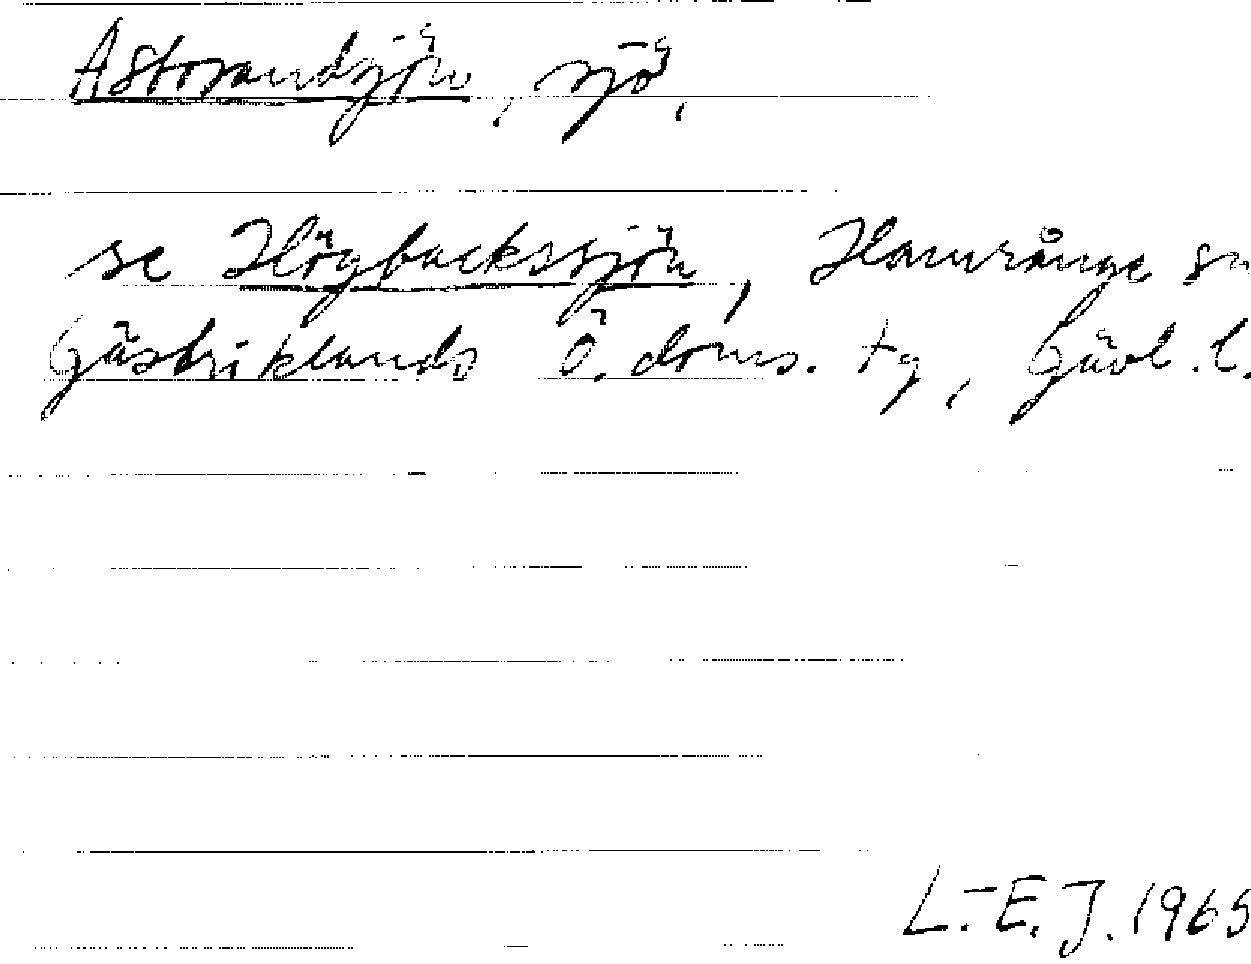 Åstosandsjön, sjö,
se Högbackssjön, Hamrånge sn
Gästriklands Ö. doms. tg, Gävl. l.
L.-E. J. 1965